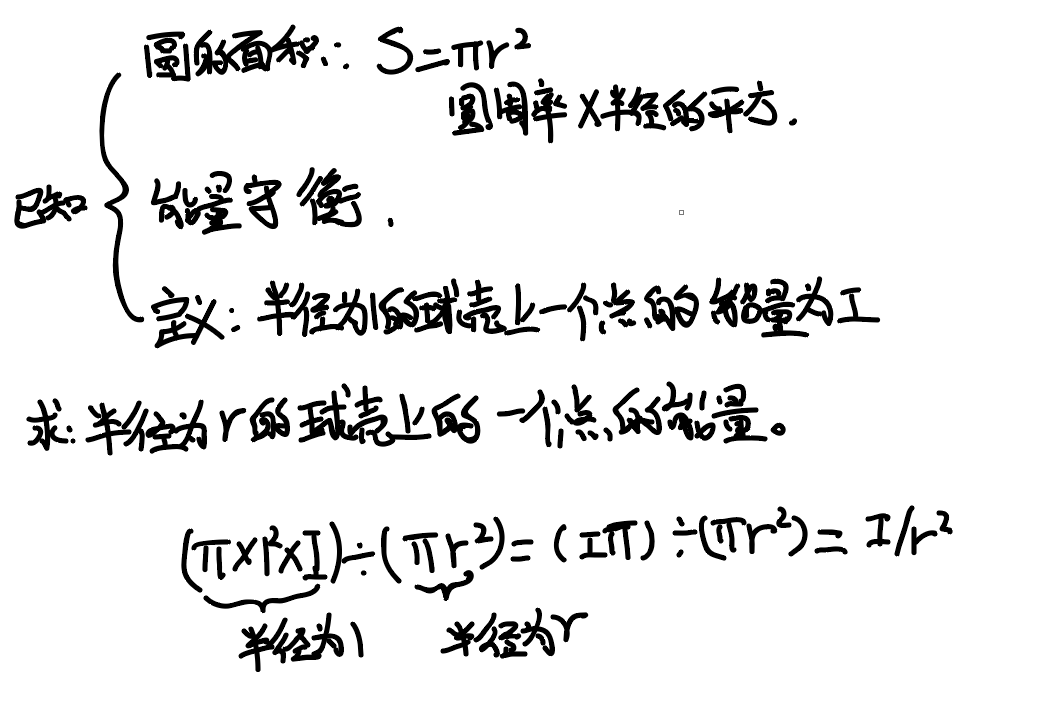 圆的面积: S=πr²
圆周率×半径的平方.
已知
能量守衡.
定义: 半径为1的球壳上一个点的能量为I
求: 半径为r的球壳上的一个点的能量。
(π×1²×I)÷(πr²)=(Iπ)÷(πr²)=I/r²
半径为1 半径为r